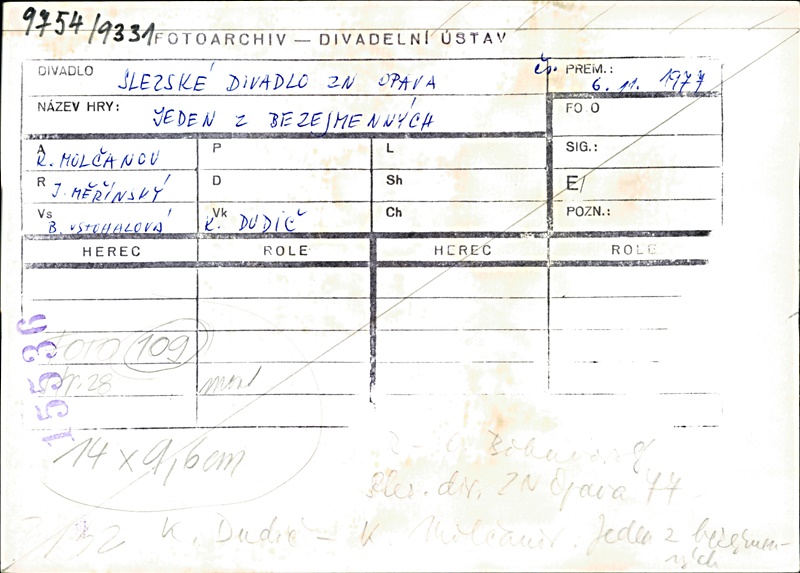 9754/9331 FOTOARCHIV — DIVADELNÍ ÚSTAV
DIVADLO SLEZSKÉ DIVADLO ZN OPAVA
čs. PREM.: 6. 11. 1977
NÁZEV HRY: JEDEN Z BEZEJMENNÝCH
FO O
A K. MOLČANOV P L SIG.:
R J. MĚŘÍNSKÝ D Sh E/
Vs B. VSTOHALOVÁ Vk K. DUDIČ Ch POZN.:
HEREC ROLE HEREC ROLE
15536
FOTO 109
28
14 x 9,6 cm
Slez. div. ZN Opava 77
K. Dudič – K. Molčanov. Jeden z bezejmen-
ných